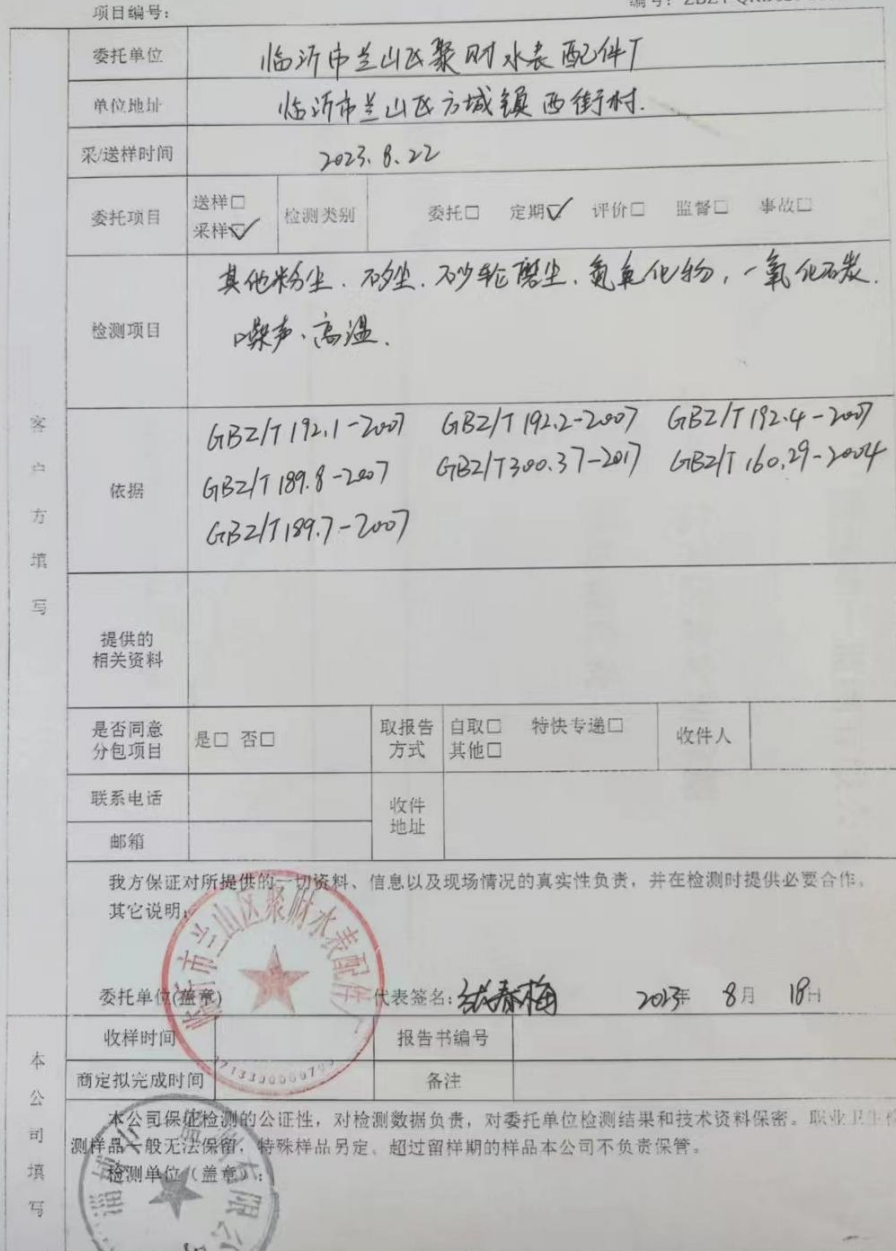 项目编号:
委托单位 临沂市兰山区聚财水表配件厂
单位地址 临沂市兰山区方城镇西街村.
采/送样时间 2023.8.22
委托项目 送样□ 采样☑ 检测类别 委托□ 定期☑ 评价□ 监督□ 事故□
检测项目 其他粉尘、矽尘、砂轮磨尘、氮氧化物,一氧化碳.
噪声、高温.
依据 GBZ/T 192.1-2007 GBZ/T 192.2-2007 GBZ/T 192.4-2007
GBZ/T 189.8-2007 GBZ/T300.37-2017 GBZ/T 160.29-2004
GBZ/T 189.7-2007
客户方填写
提供的
相关资料
是否同意
分包项目 是□ 否□
取报告
方式
自取□ 特快专递□
其他□
收件人
联系电话
邮箱
收件
地址
我方保证对所提供的一切资料、信息以及现场情况的真实性负责,并在检测时提供必要合作。
其它说明:
临沂市兰山区聚财水表配件厂
委托单位(盖章) 代表签名: 2023年 8月 18日
收样时间 报告书编号
商定拟完成时间 备注
本公司填写
本公司保证检测的公证性,对检测数据负责,对委托单位检测结果和技术资料保密。职业卫生检
测样品一般无法保留,特殊样品另定。超过留样期的样品本公司不负责保管。
检测单位(盖章):